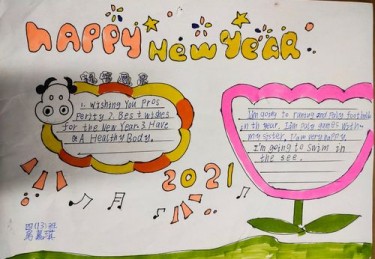 HAPPY New YeAR
1. Wishing You Pros
Perity 2. Best wishes
for the New Year 3 Have
a A Healthy Body.
I'm going to runing and Play football
in th year. I
games with
sister. I am very happy.
I'm going to Swim in
the see.
2021